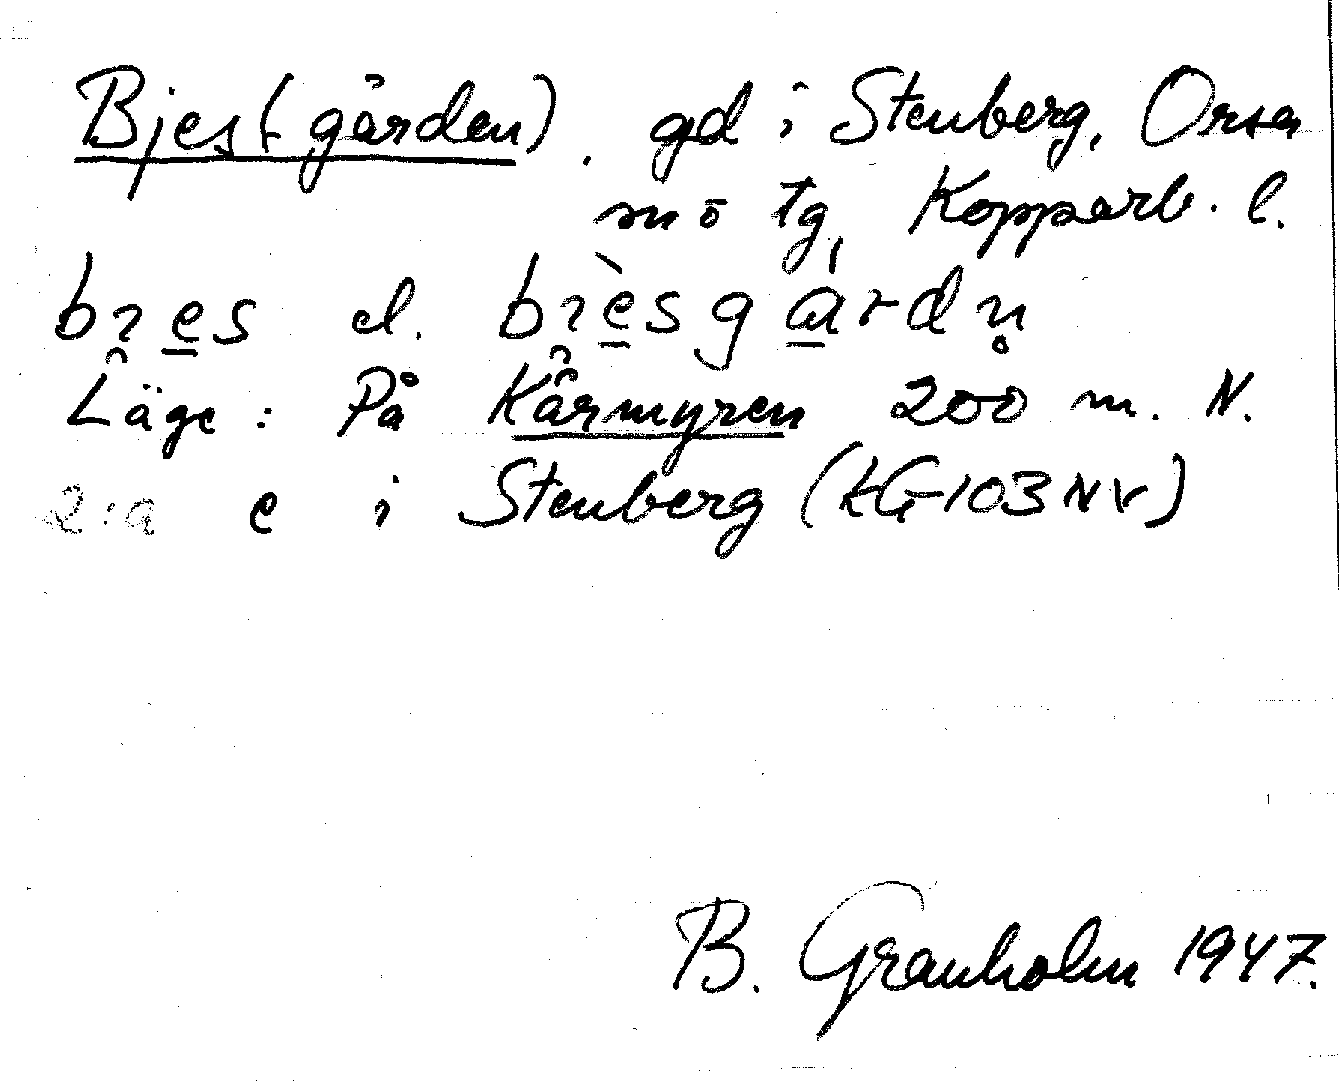 Bjes(-gården), gd i Stenberg, Orsa
m o tg, Kopparb. l.
bı̯es el. bı̯èsgàrdn̥
Läge: På Kårmyren 200 m. N.
2:a e i Stenberg (kG-103NV)
B. Granholm 1947.